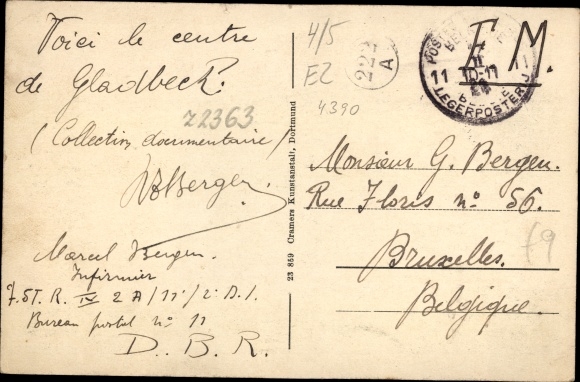 Voici le centre
de Gladbeck.
(Collection documentaire)
Bergen.
Marcel Bergen.
Infirmier
2 A / 11e / 2e D.I.
Bureau postal no 11
D. B. R.
22363
4/5
EZ
4390
222
A
F. M.
11
11
10-11
LEGERPOSTERIJ
23 859 Cramers Kunstanstalt, Dortmund
Monsieur G. Bergen.
Rue Floris no 56.
Bruxelles.
Belgique.
f9